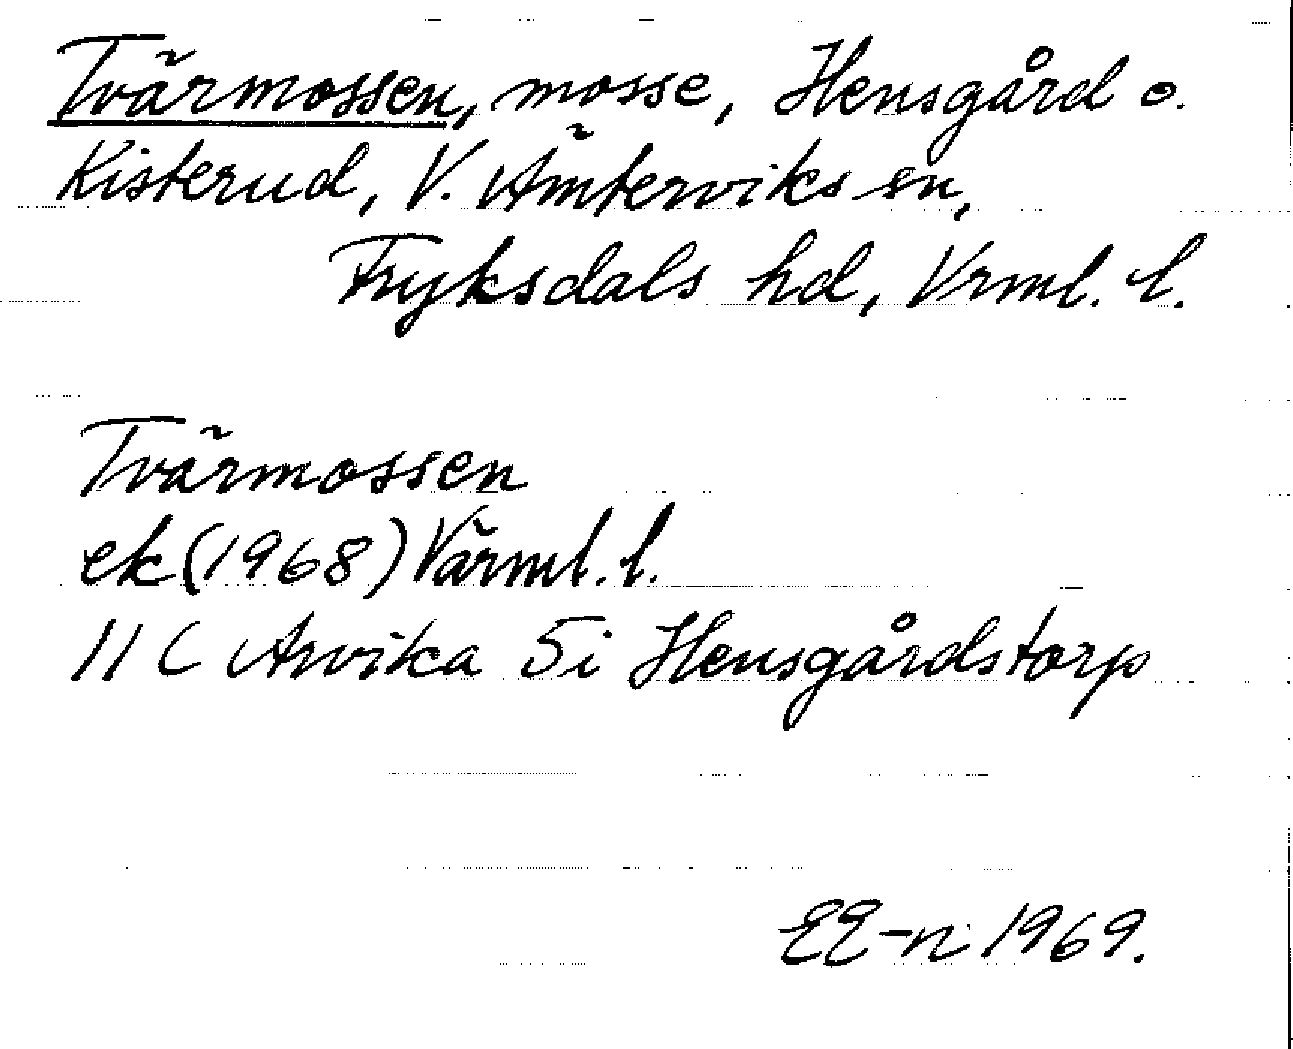 Tvärmossen, mosse, Hensgård o.
Kisterud, V. Ämterviks sn,
Fryksdals hd, Vrml. l.
Tvärmossen
ek (1968) Värml. l.
11 C Arvika 5i Hensgårdstorp
EE-n 1969.